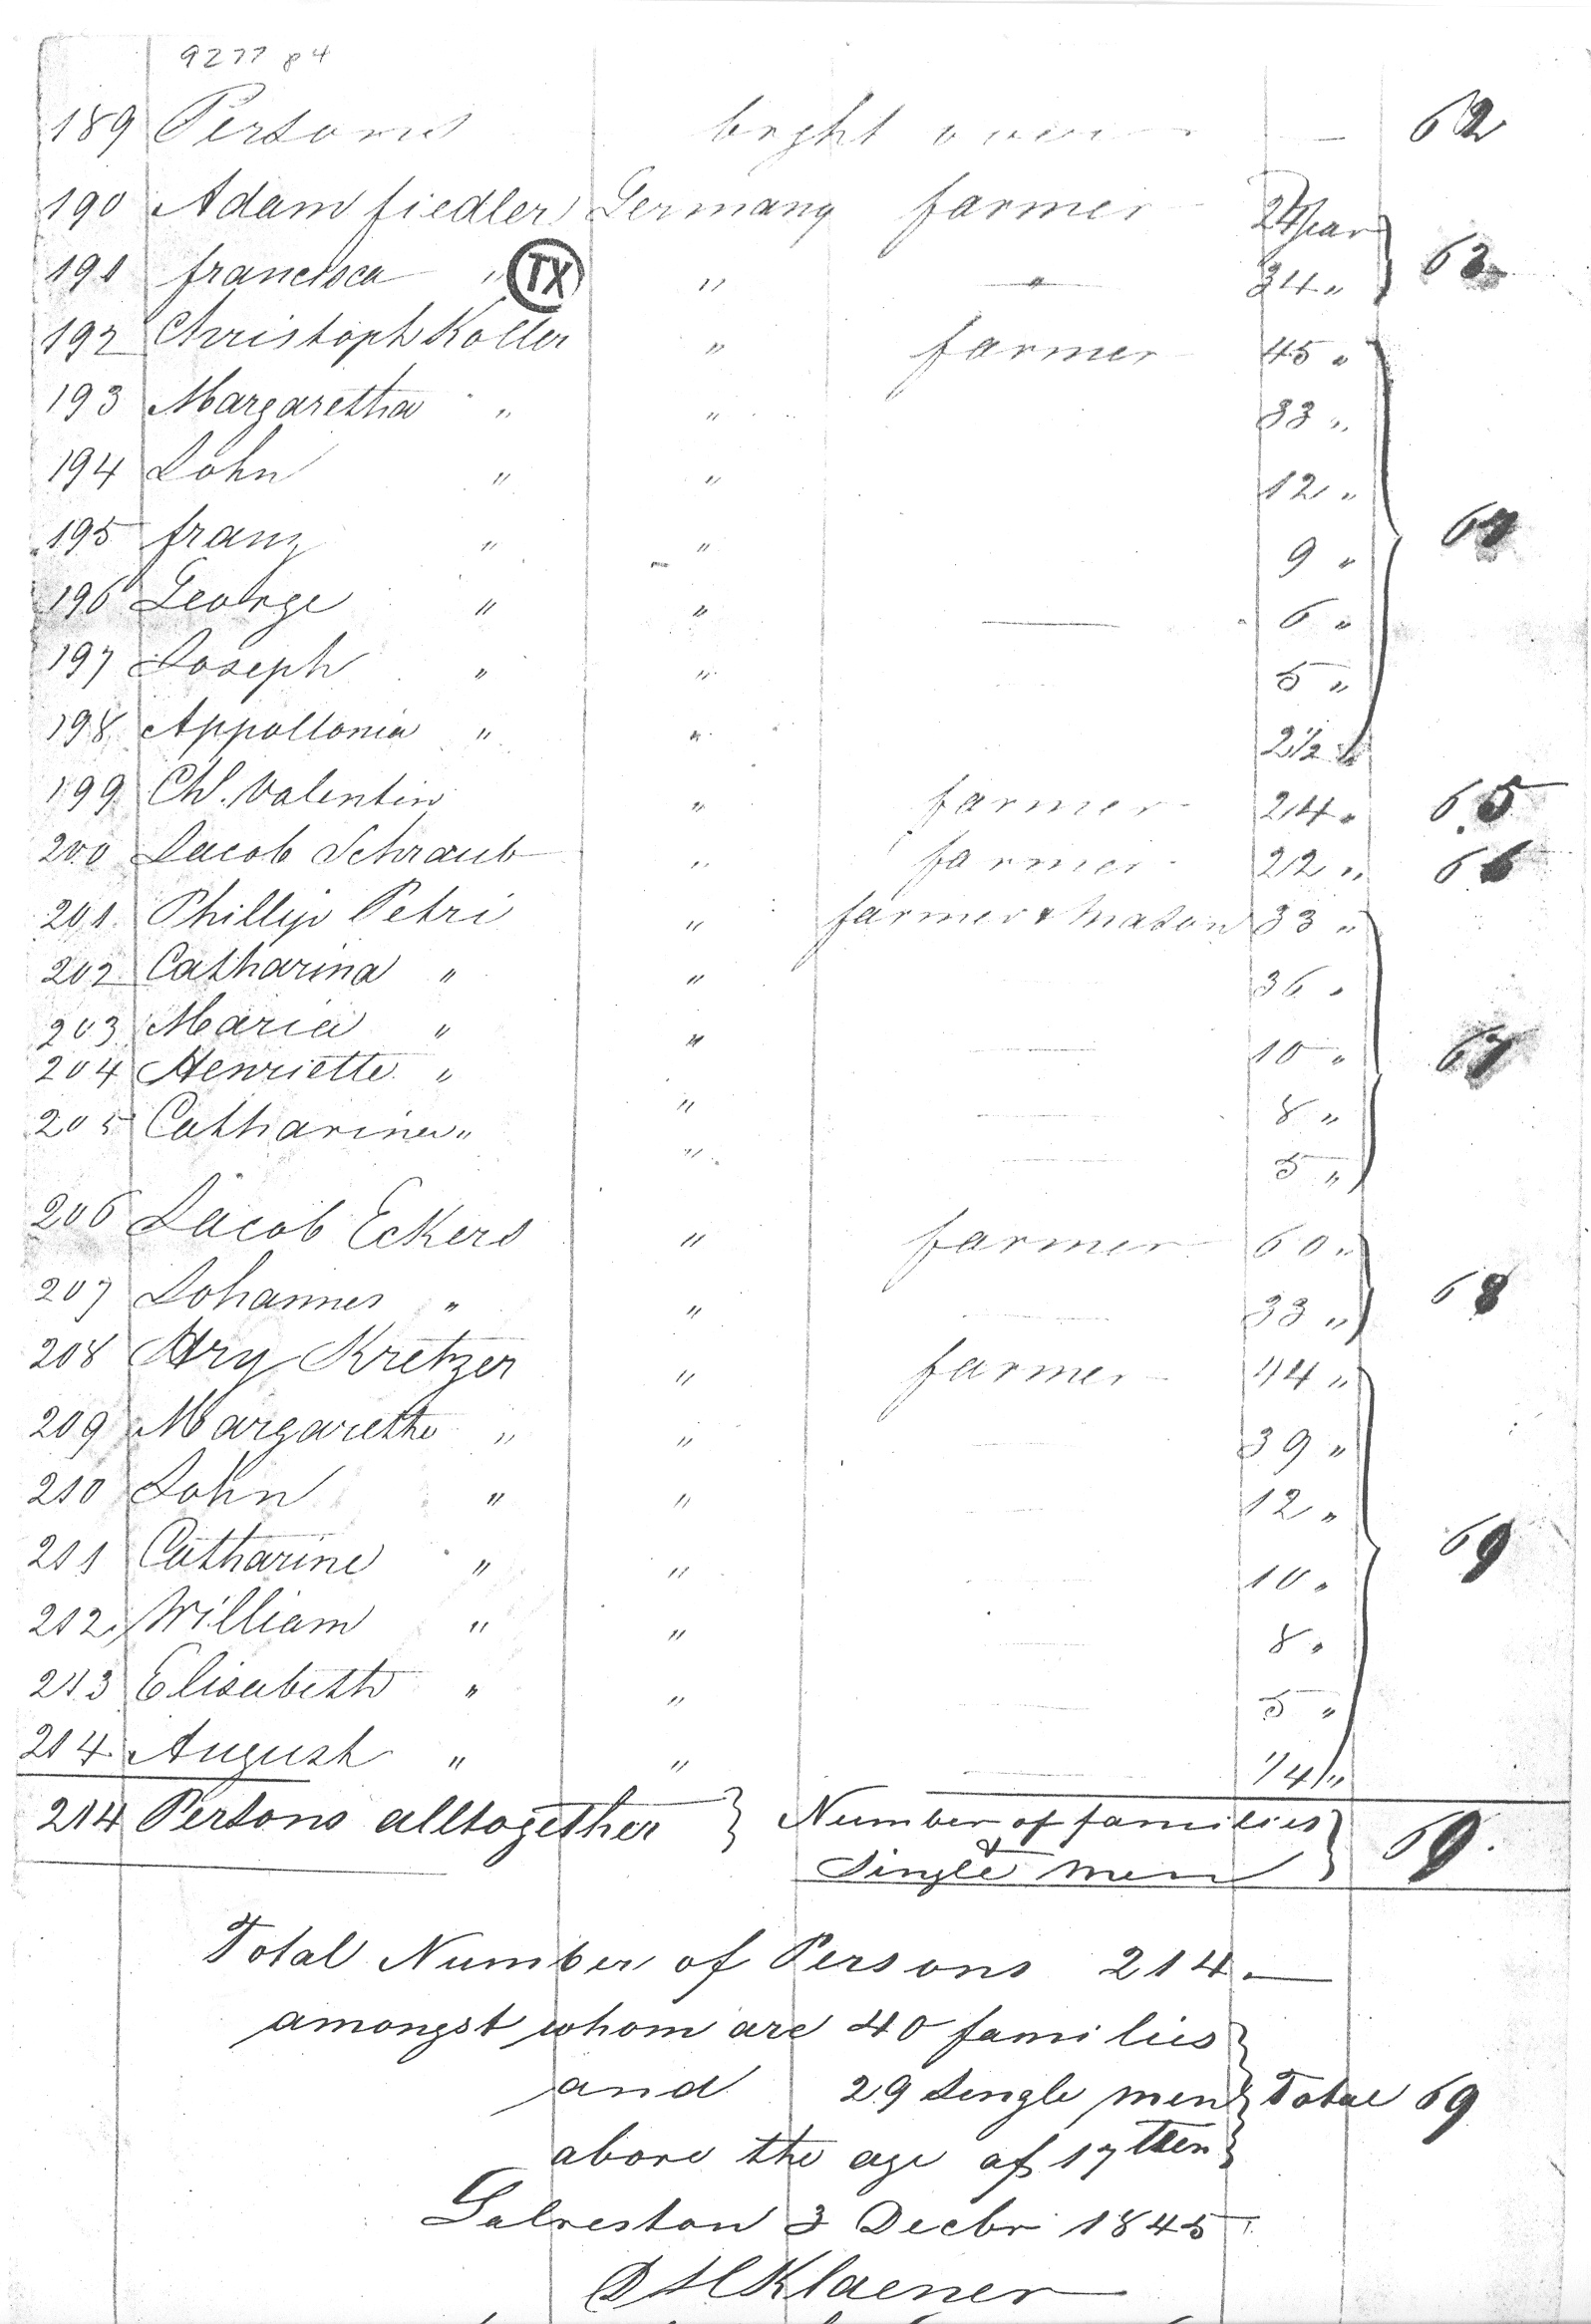 9277 84
189 Persons brght over — 62
190 Adam fiedler Germany farmer 24 Year
191 francisca " TX " " 34 " 63
192 Christoph Koller " farmer 45 "
193 Margaretha " " 33 "
194 John " " 12 "
195 franz " " 9 " 64
196 George " " — 6 "
197 Joseph " " 5 "
198 Appollonia " " 2½ "
199 Ch. Valentin " farmer 24 " 65
200 Jacob Schraub " farmer 22 " 66
201 Phillip Petri " farmer & Mason 33 "
202 Catharina " " 36 "
203 Maria " " — 10 " 67
204 Henriette " " — 8 "
205 Catharina " " — 5 "
206 Jacob Eckers " farmer 60 "
207 Johannes " " — 33 " 68
208 Hry Kretzer " farmer 44 "
209 Margarethe " " — 39 "
210 John " " — 12 "
211 Catharine " " — 10 " 69
212 William " " — 8 "
213 Elisabeth " " — 5 "
214 August " " — 1/4 "
214 Persons alltogether } Number of families
& Single men } 69.
Total Number of Persons 214 —
amongst whom are 40 families
and 29 Single men } Total 69
above the age of 17 teen
Galveston 3 Decbr 1845
D H Klaener